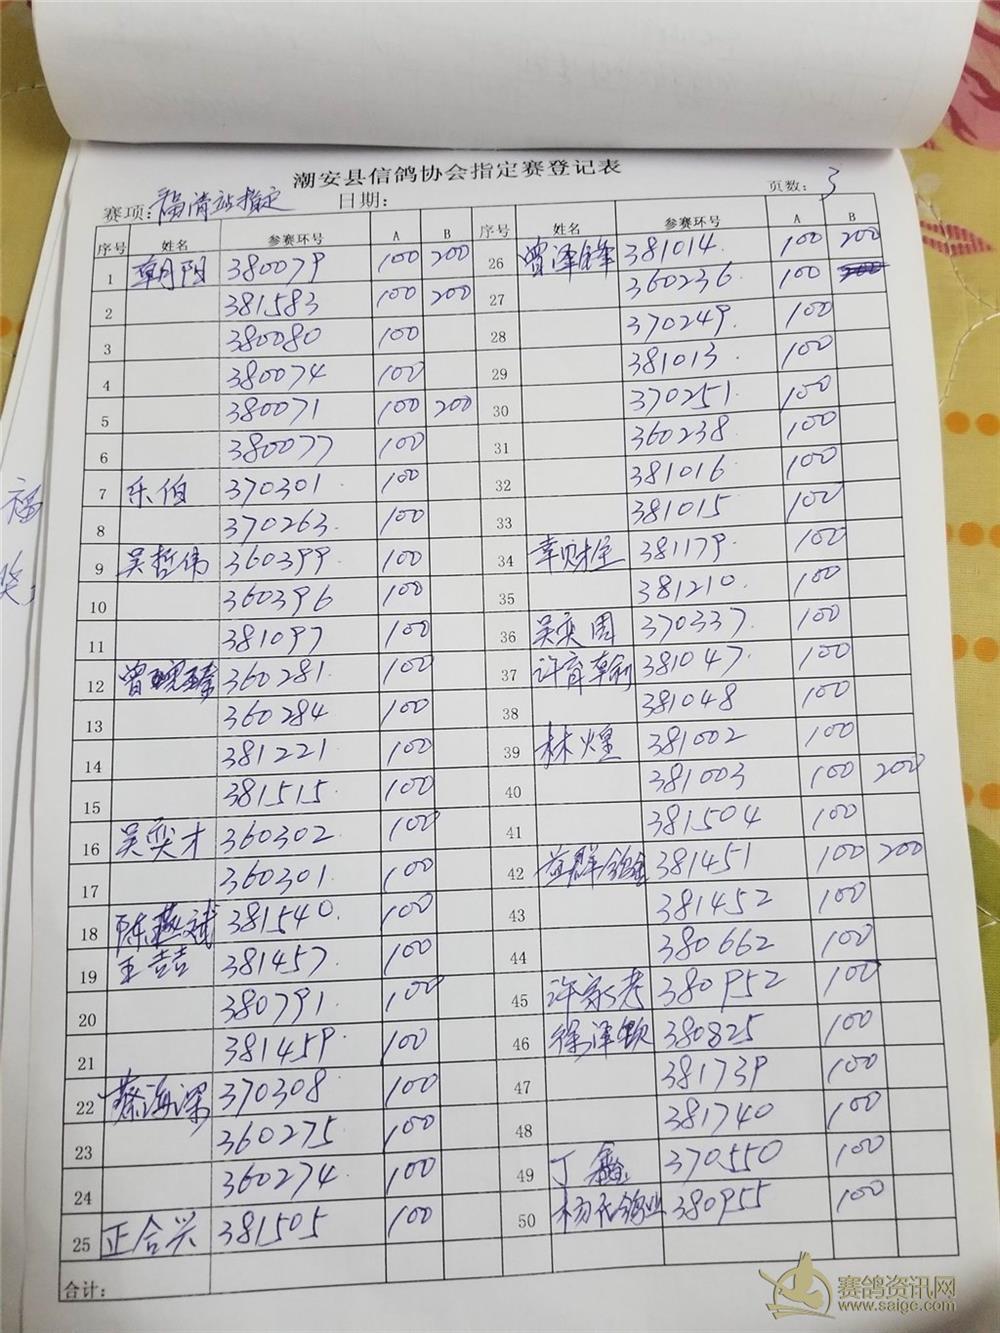 潮安县信鸽协会指定赛登记表
赛项: 福清站指定 日期: 页数: 3
序号 姓名 参赛环号 A B 序号 姓名 参赛环号 A B
1 380079 100 200 26 曾泽锋 381014 100 200
2 381583 100 200 27 360236 100 200
3 380080 100 28 370249 100
4 380074 100 29 381013 100
5 380071 100 200 30 370251 100
6 380077 100 31 360238 100
7 乐伯 370301 100 32 381016 100
8 370263 100 33 381015 100
9 吴哲伟 360399 100 34 381179 100
10 360396 100 35 381210 100
11 381097 100 36 吴奕周 370337 100
12 曾 360281 100 37 许育 381047 100
13 360284 100 38 381048 100
14 381221 100 39 林煌 381002 100
15 381515 100 40 381003 100 200
16 吴奕才 360302 100 41 381504 100
17 360301 100 42 益群鸽舍 381451 100 200
18 陈燕斌 381540 100 43 381452 100
19 王喆 381457 100 44 380662 100
20 380791 100 45 许家考 380952 100
21 381459 100 46 徐泽钦 380825 100
22 蔡海深 370308 100 47 381739 100
23 360275 100 48 381740 100
24 360274 100 49 丁鑫 370550 100
25 正合兴 381505 100 50 杨氏鸽业 380955 100
合计:
福
奖
赛鸽资讯网
www.saigc.com